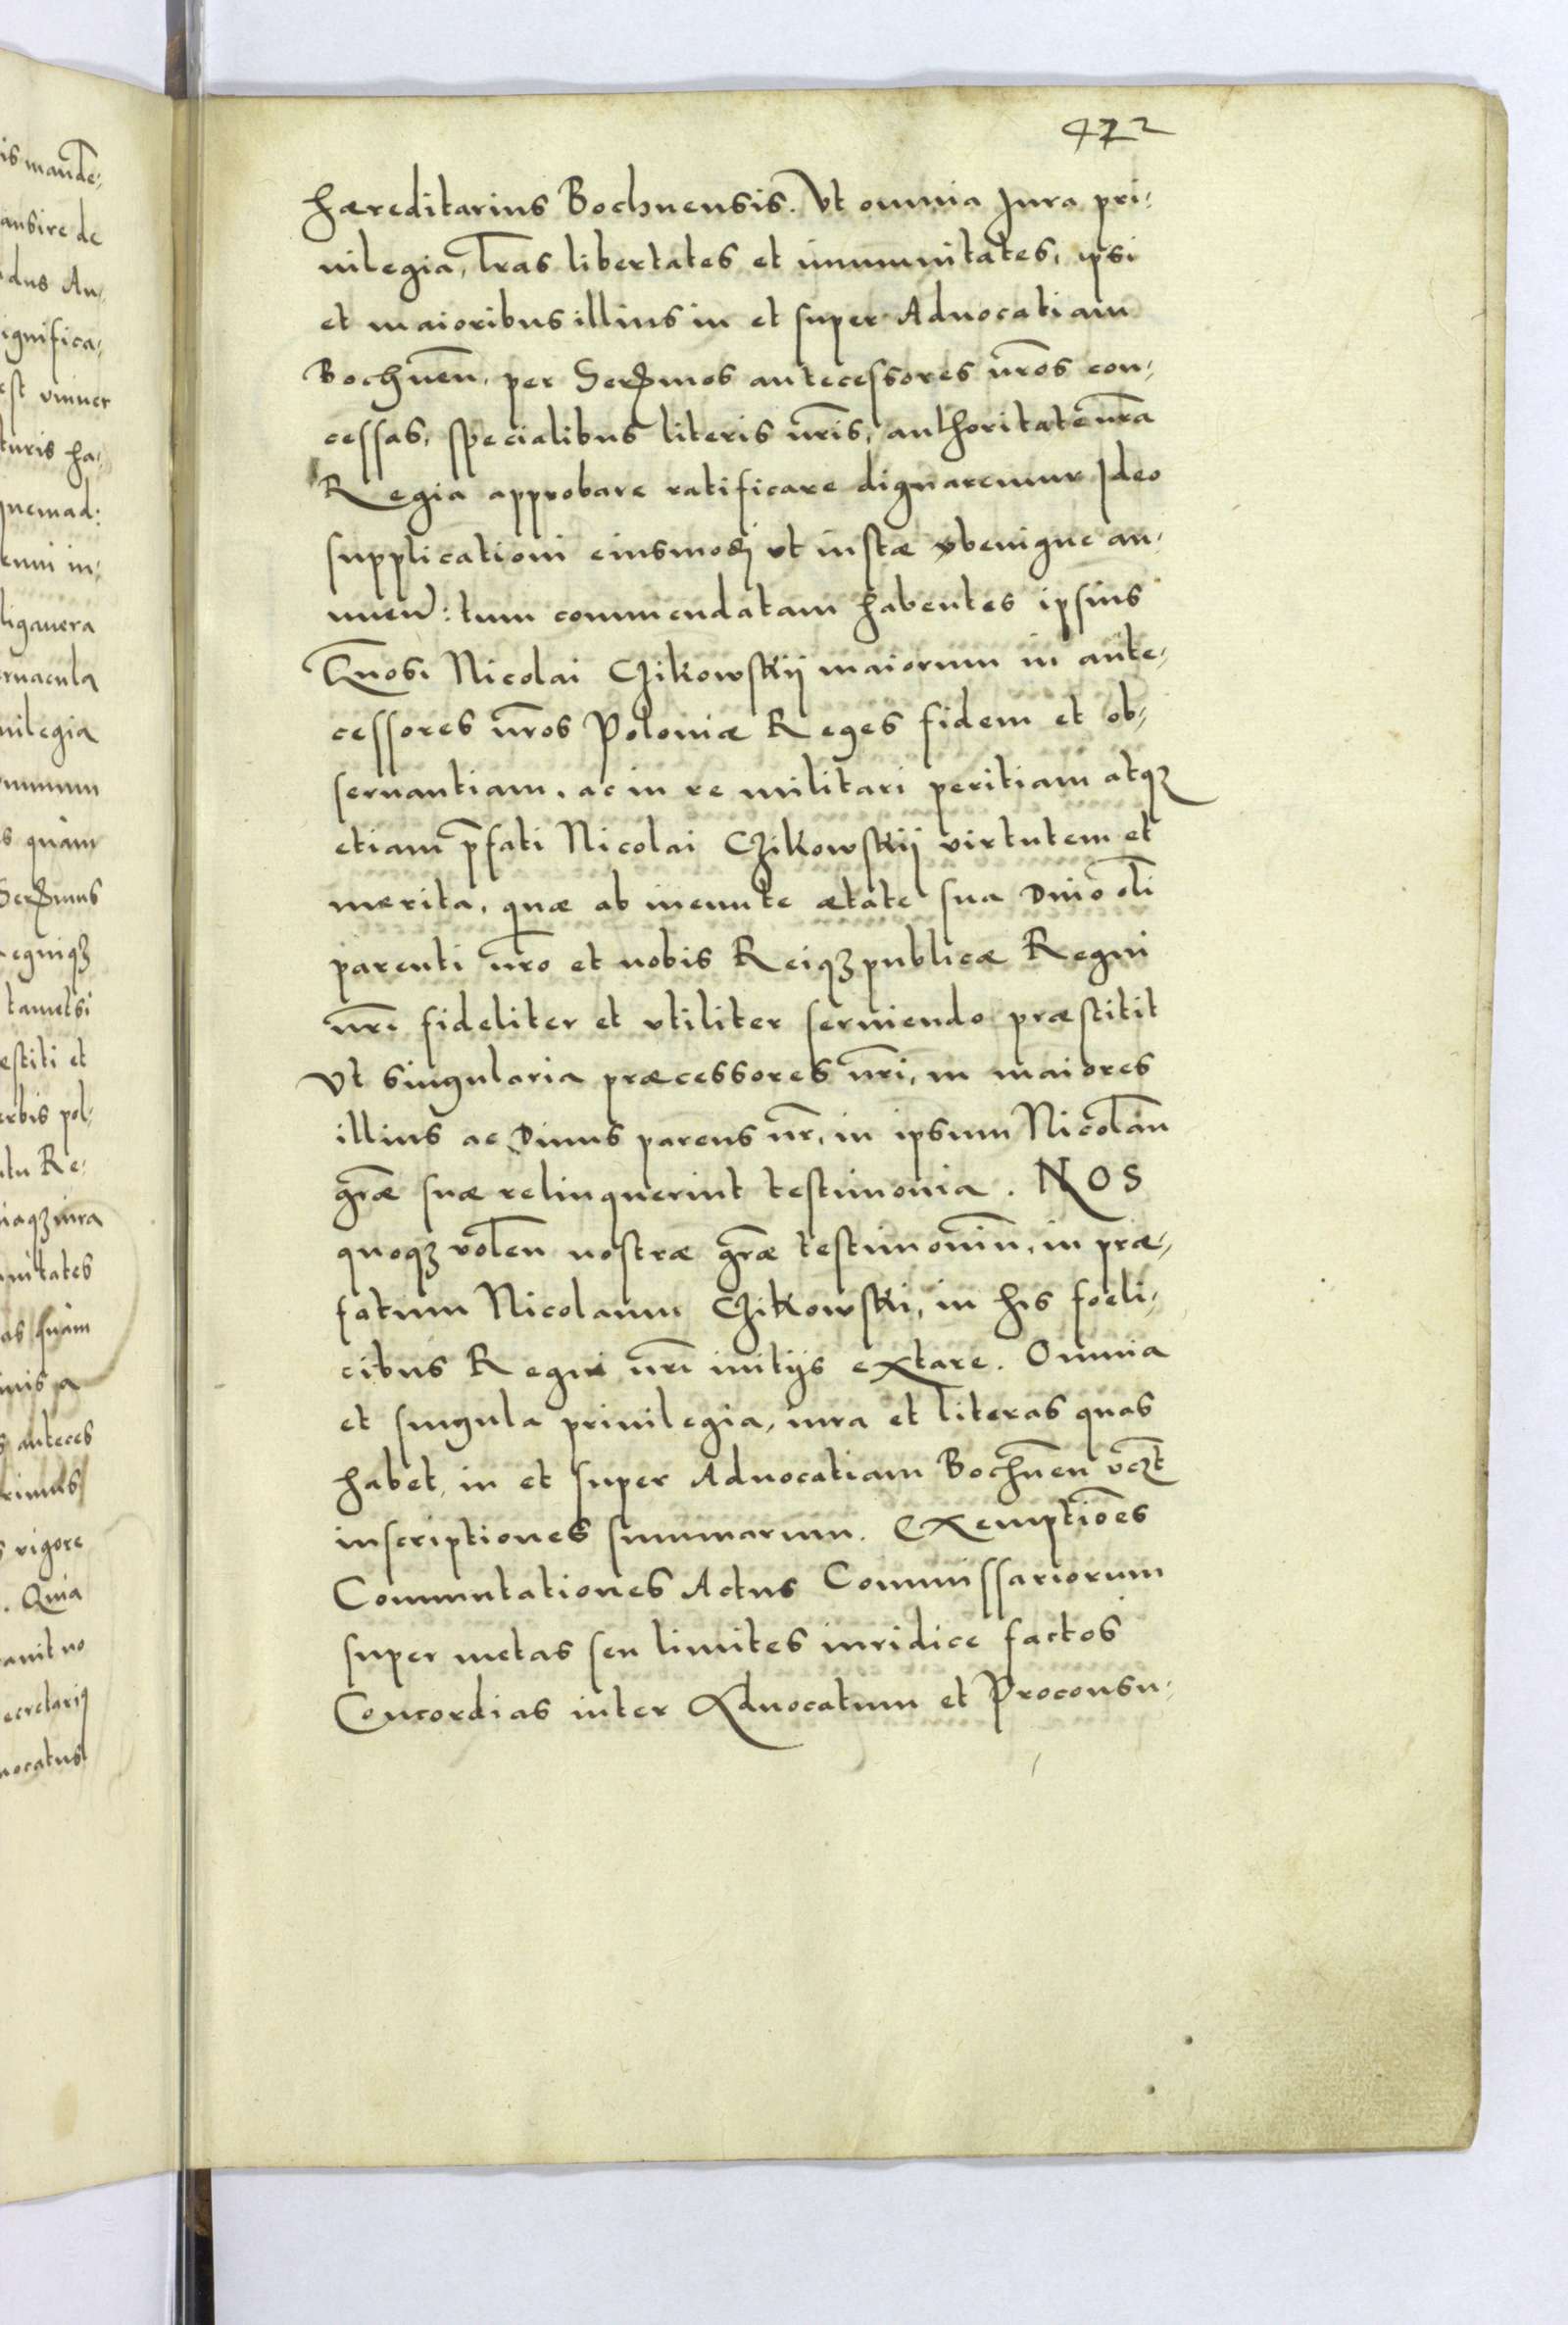 is mande,
ansire de
dus Au,
ignifica,
est vniuer
turis ha,
quemad:
enni in,
ligauera
ernacula
uilegia
ommum
s quàm
Serꝫmus
egniqꝫ
tametsi
estiti et
erbis pol,
tu Re,
iaqꝫ iura
nitates
as suam
inis a
s anteces
rimus
s vigore
. Quia
auit no
ecretarij
uocatus
472
hæreditarius Bochnensis. Vt omnia Jura pri,
uilegia, lr̃as libertates et immunitates, ipsi
et maioribus illius in et super Aduocatiam
Bochnen̄. per Serꝫmos antecessores nr̃os con,
cessas, specialibus literis nr̃is, authoritate nr̃a
Regia approbare ratificare dignaremur Ideo
supplicationi eiusmodi vt iustæ benigne an,
nuen̄: tum commendatam habentes ipsius
Gñosi Nicolai Czikowskij maiorum in ante,
cessores nr̃os Poloniæ Reges fidem et ob,
seruantiam, ac in re militari peritiam atqꝫ
etiam p̄fati Nicolai Czikowskij virtutem et
merita, quæ ab ineunte ætate sua Diuo oli
parenti nr̃o et nobis Reiqꝫpublicæ Regni
nr̃i fideliter et vtiliter seruiendo præstitit
Vt singularia præcessores nr̃i, in maiores
illius ac Diuus parens nr̃, in ipsum Nicolaū
gr̃æ suæ relinquerint testimonia. NOS
quoqꝫ volen̄ nostræ gr̃æ testimoniū, in præ,
fatum Nicolaum Czikowski, in his foeli,
cibus Regni nr̃i initijs extare. Omnia
et singula priuilegia, iura et literas quas
habet, in et super Aduocatiam Bochnen̄ vczt
inscriptiones summarum. Exemptioēs
Commutationes Actus Commissariorum
super metas seu limites iuridice factos
Concordias inter Aduocatum et Proconsu,